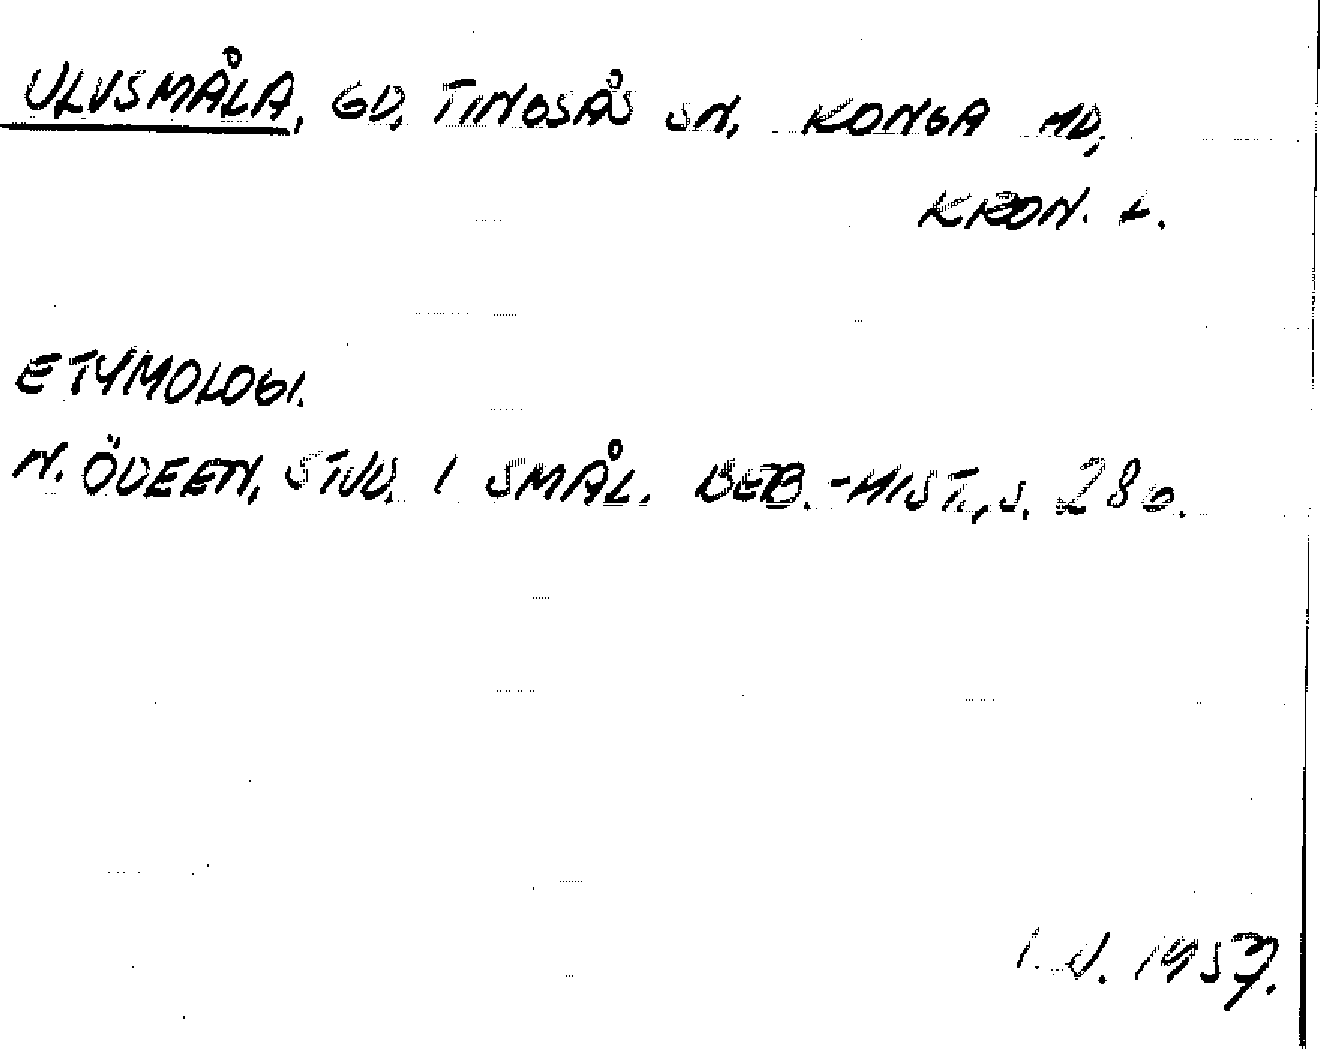 ULVSMÅLA, GD, TINGSÅS SN, KONGA HD,
KRON. L.
ETYMOLOGI.
N. ÖDEEN, STUD. I SMÅL. BEB.-HIST., S. 280.
I. J. 1957.